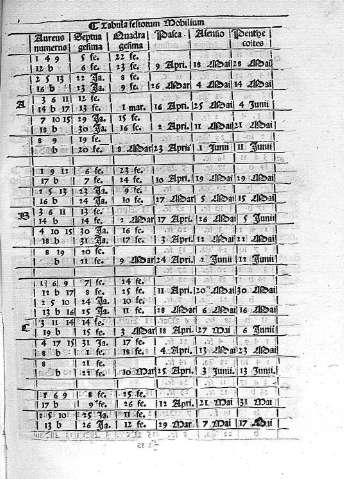 Tabula festorum Mobilium
Aureus numerus | Septuagesima | Quadragesima | Pasca | Ascensio | Penthecostes
1 4 9 | 5 fe. | 22 fe.
12 b | 6 fe. | 23 fe. | 9 Apri. | 18 Mai | 28 Mai
2 5 13 | 12 Ja. | 8 fe.
16 b | 13 Ja. | 9 fe. | 26 Mar | 4 Mai | 14 Mai
A
3 6 11 | 12 fe.
14 b 17 | 13 fe. | 1 mar. | 16 Apri. | 25 Mai | 4 Junii
7 10 15 | 29 Ja. | 15 fe.
18 b | 30 Ja. | 16 fe. | 2 Apri. | 11 Mai | 21 Mai
8 9 | 19 fe.
b | 20 fe. | 8 Mar | 23 Apris | 1 Junii | 11 Junii
1 9 12 | 6 fe. | 23 fe.
17 b | 7 fe. | 24 fe. | 10 Apri. | 19 Mai | 29 Mai
2 5 13 | 23 Ja. | 9 fe.
16 b | 24 Ja. | 10 fe. | 17 Mar | 5 Mai | 15 Mai
B
3 6 11 | 13 fe.
14 b | 14 fe. | 2 Mar | 17 Apri. | 26 Mai | 5 Junii
4 10 15 | 30 Ja. | 16 fe.
18 b | 31 Ja. | 17 fe. | 3 Apri. | 12 Mai | 22 Mai
8 19 | 20 fe.
b | 21 fe. | 9 Mar | 24 Apri. | 2 Junii | 12 Junii
1 6 9 | 7 fe. | 24 fe.
12 b 17 | 8 fe. | 25 fe. | 11 Apri. | 20 Mai | 30 Mai
2 5 10 | 24 Ja. | 10 fe.
13 b 16 | 25 Ja. | 11 fe. | 28 Mar | 6 Mai | 16 Mai
C
3 11 14 | 14 fe.
19 b | 15 fe. | 3 Mar | 18 Apri. | 27 Mai | 6 Junii
4 17 15 | 31 Ja. | 17 fe.
8 b | 1 fe. | 18 fe. | 4 Apri. | 13 Mai | 23 Mai
8 | 21 fe.
b | 22 fe. | 10 Mar | 25 Apri. | 3 Junii. | 13 Junii.
1 6 9 | 8 fe. | 25 fe.
17 b | 9 fe. | 26 fe. | 12 Apri. | 21 Mai | 31 Mai
2 5 10 | 25 Ja. | 11 fe.
13 b | 26 Ja. | 12 fe. | 29 Mar | 7 Mai | 17 Mai